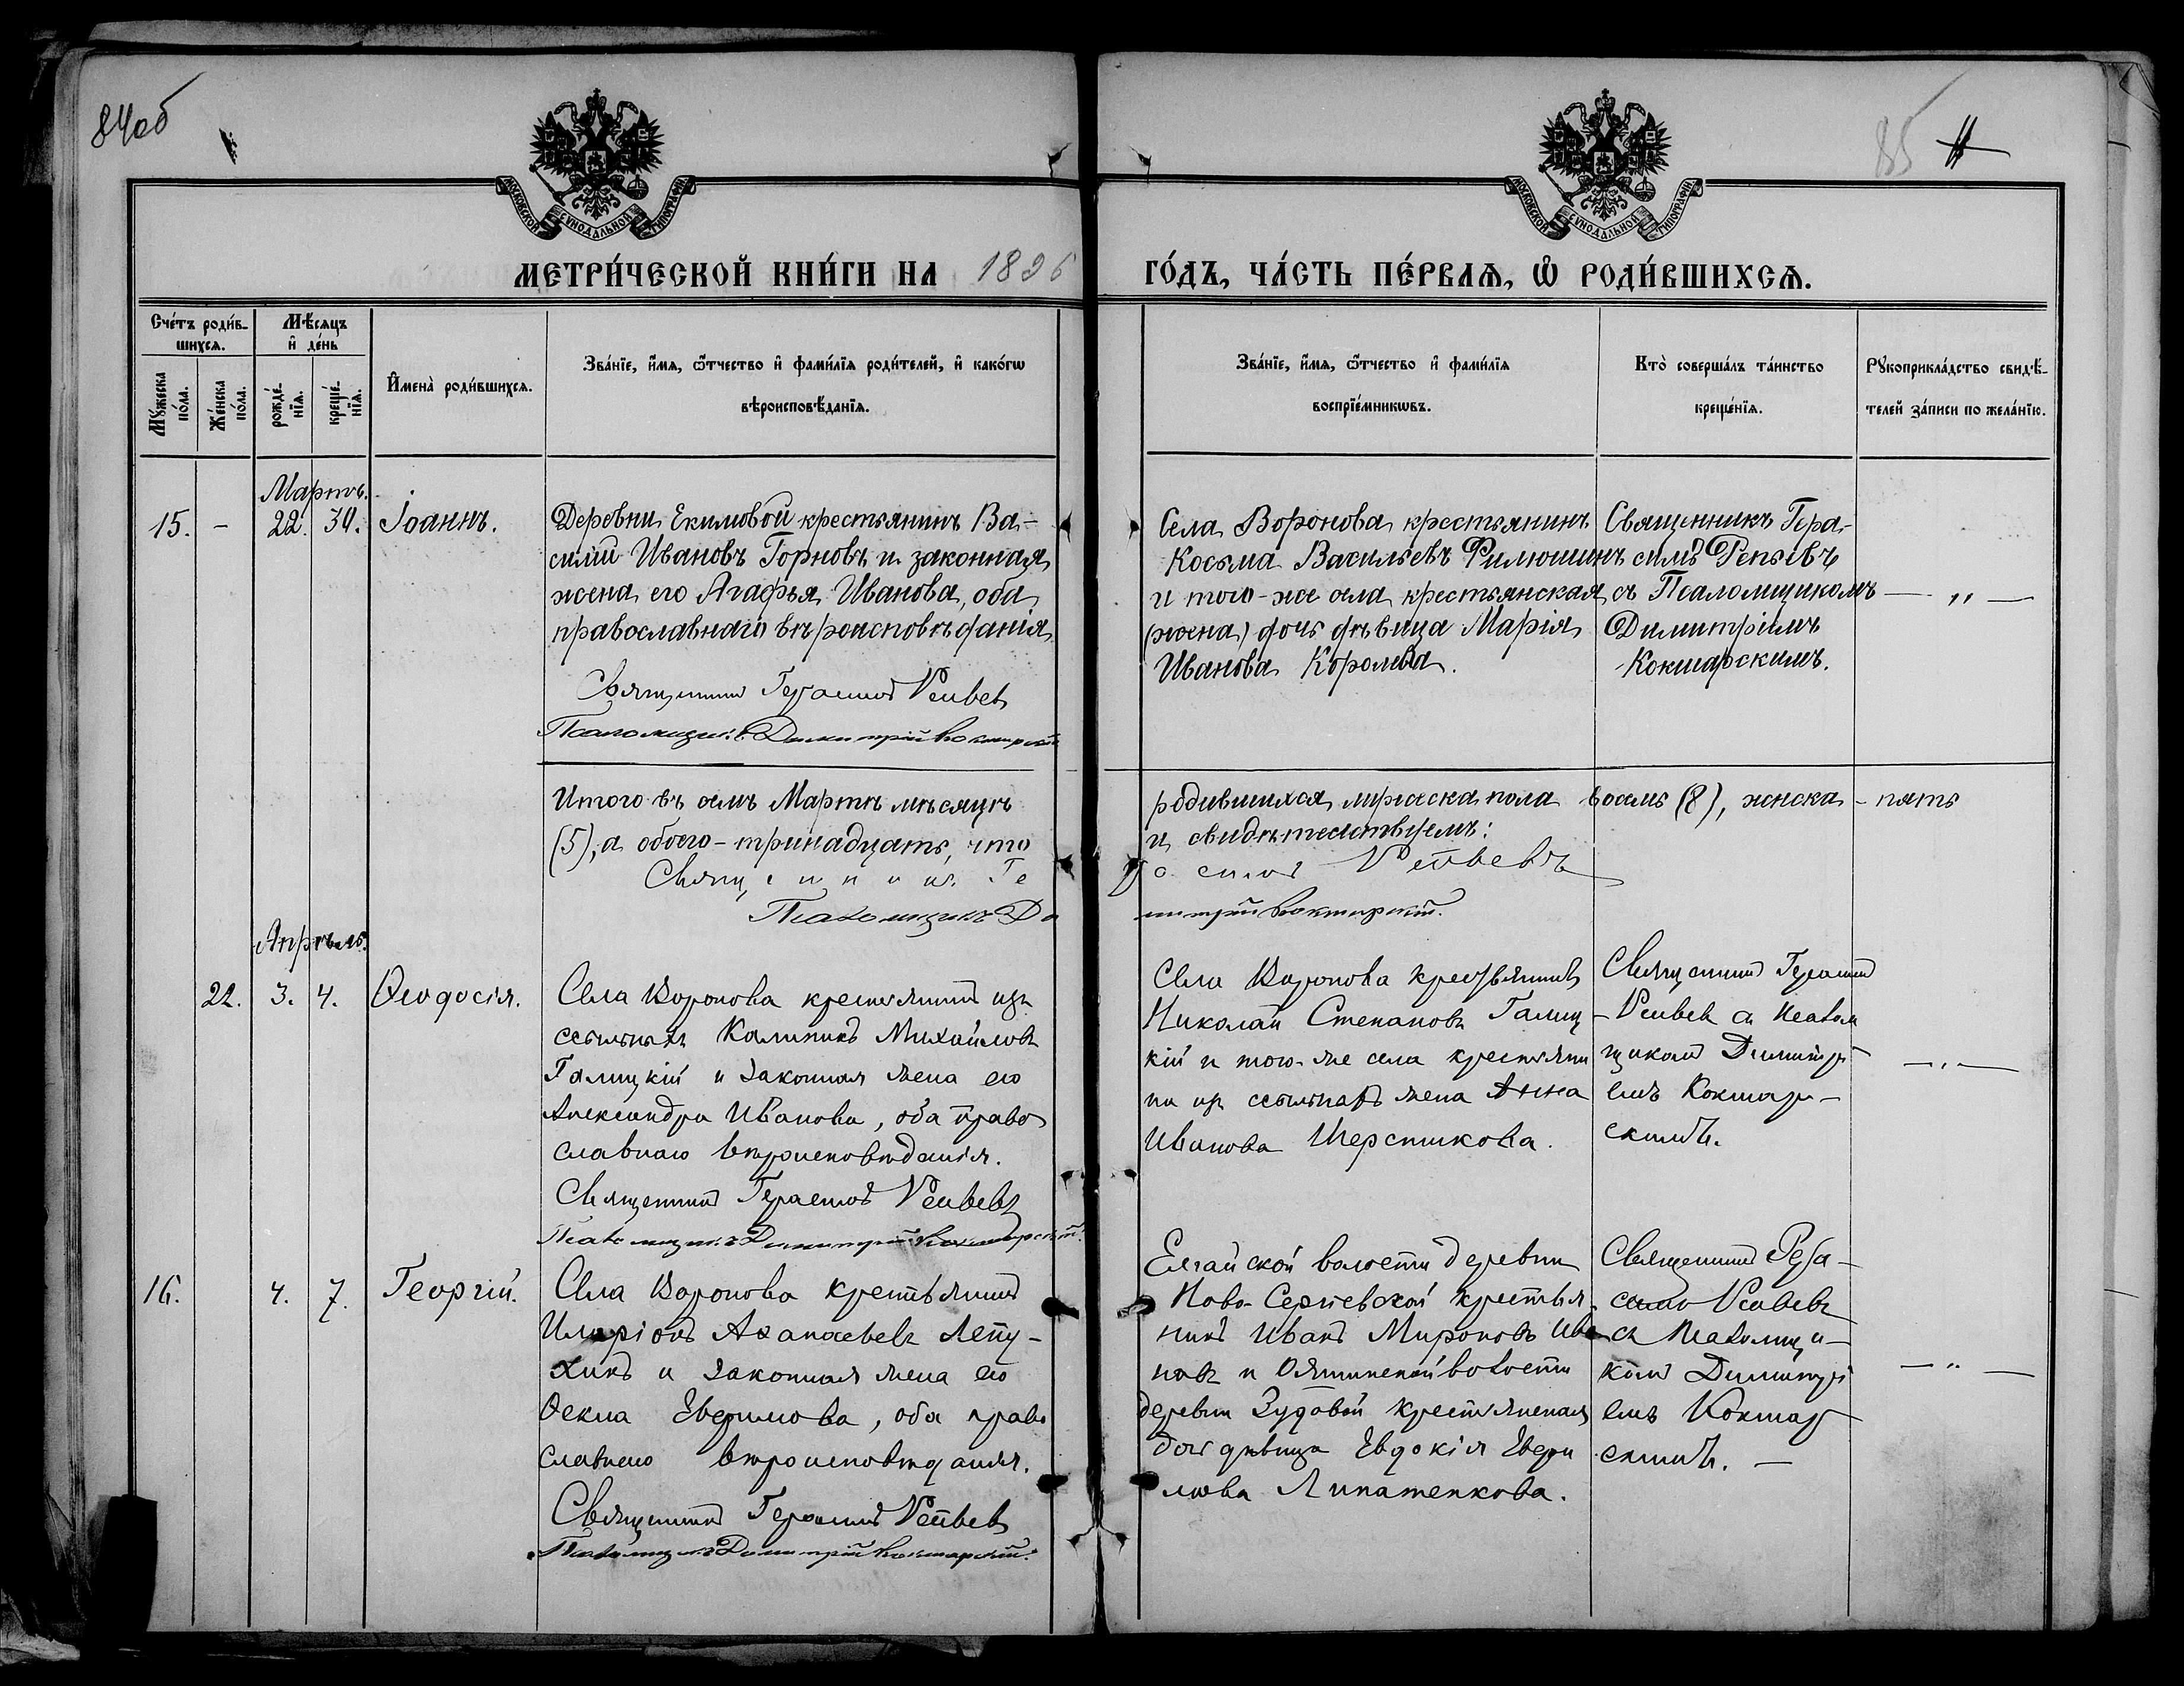 84об
85
МОСКОВСКОЙ СѴНОДАЛЬНОЙ ТИПОГРАФІИ
МОСКОВСКОЙ СѴНОДАЛЬНОЙ ТИПОГРАФІИ
МЕТРИ́ЧЕСКОЙ КНИ́ГИ НА 1896
ГО́ДЪ, ЧА́СТЬ ПЕ́РВАѦ, Ѡ҆ РОДИ́ВШИХСѦ.
Сче́тъ роди́в-
шихсѧ.
Мѣ́сѧцъ
и҆ де́нь
Мꙋ́жеска
по́ла.
Же́нска
по́ла.
рожде́-
нїѧ.
креще́-
нїѧ.
И҆мена̀ роди́вшихсѧ.
Зва́нїе, и҆́мѧ, ѻ҆́тчество и҆ фами́лїѧ роди́телей, и҆ како́гѡ
вѣроисповѣ́данїѧ.
Зва́нїе, и҆́мѧ, ѻ҆́тчество и҆ фами́лїѧ
воспрїе́мникѡвъ.
Кто̀ соверша́лъ та́инство
креще́нїѧ.
Рꙋкоприкла́дство свидѣ́-
телей за́писи по жела́нїю.
Мартъ.
15. - 22. 30. Іоаннъ.
Деревни Екимовой крестьянинъ Ва-
силій Ивановъ Горновъ и законная
жена его Агафья Иванова, оба
православнаго вѣроисповѣданія
Священникъ Герасимъ Репьевъ
Псаломщикъ Димитрій Кокшарскій
Села Воронова крестьянинъ
Косьма Васильевъ Филюшинъ
и того-же села крестьянская
(жена) дочь дѣвица Марія
Иванова Королева.
Священникъ Гера-
симъ Репьевъ
съ Псаломщикомъ
Димитріемъ
Кокшарскимъ.
— „ —
Итого въ семъ Мартѣ мѣсяцѣ родившихся мужеска пола восемь (8), женска - пять
(5), а обоего - тринадцать, что и свидѣтельствуемъ:
Священникъ Герасимъ Репьевъ
Псаломщикъ Димитрій Кокшарскій.
Апрѣль.
22. 3. 4. Ѳеодосія.
Села Воронова крестьянинъ изъ
ссыльныхъ Калиникъ Михайловъ
Галицкій и законная жена его
Александра Иванова, оба право
славнаго вѣроисповѣданія.
Священникъ Герасимъ Репьевъ
Псаломщикъ Димитрій Кокшарскій.
Села Воронова крестьянинъ
Николай Степановъ Галиц-
кій и того-же села крестьяни
на изъ ссыльныхъ жена Анна
Иванова Шерстикова.
Священникъ Герасимъ
Репьевъ съ Псалом
щикомъ Димитрі
емъ Кокшар-
скимъ.
— „ —
16. 4. 7. Георгій.
Села Воронова крестьянинъ
Иларіонъ Аѳанасьевъ Лепу-
хинъ и законная жена его
Ѳекла Евфимова, оба право
славнаго вѣроисповѣданія.
Священникъ Герасимъ Репьевъ
Псаломщикъ Димитрій Кокшарскій.
Елгайской волости деревни
Ново-Сергіевской крестья-
нинъ Иванъ Мироновъ Ива
новъ и волости
деревни Зудовой крестьянская
дочь дѣвица Евдокія Евфи
мова Липатенкова.
Священникъ Гера-
симъ Репьевъ
съ Псаломщи-
комъ Димитрі
емъ Кокшар
скимъ. —
— „ —